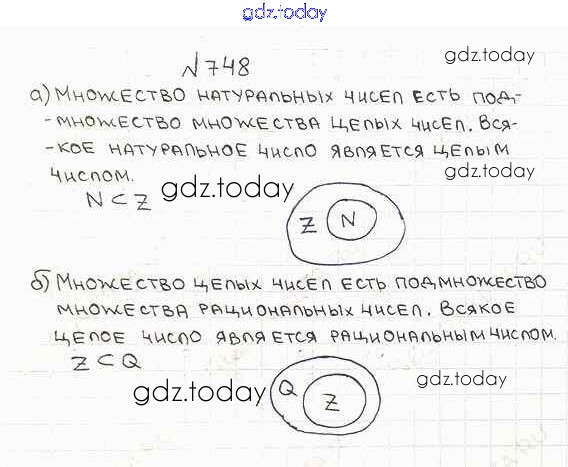 gdz.today
№748
gdz.today
а) Множество натуральных чисел есть под-
-множество множества целых чисел. Вся-
-кое натуральное число является целым
числом.
gdz.today
gdz.today
N ⊂ Z
Z N
б) Множество целых чисел есть подмножество
множества рациональных чисел. Всякое
целое число является рациональным числом.
Z ⊂ Q
gdz.today
Q Z
gdz.today